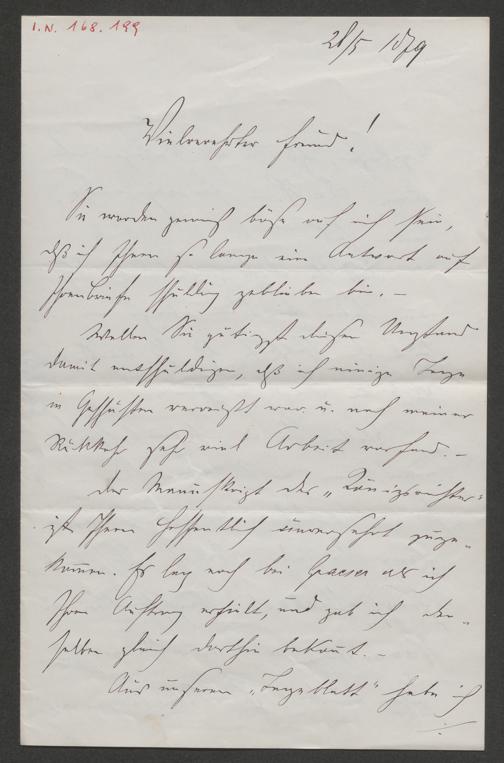 I.N. 168.199
28/5 1879
Vielverehrter Freund!
Sie werden gewiß böse auf mich sein,
daß ich Ihnen so lange eine Antwort auf
Ihren Brief schuldig geblieben bin. –
Wollen Sie gütigst diesen Umstand
damit entschuldigen, daß ich einige Tage
in Geschäften verreist war u. nach meiner
Rückkehr sehr viel Arbeit vorfand. –
Das Manuskript des „Königsrichter“
ist Ihnen hoffentlich unversehrt zuge-
kommen. Es lag noch bei Graeser als ich
Ihren Auftrag erhielt, und gab ich den-
selben gleich dorthin bekannt. –
Aus unserem „Tageblatt“ habe ich